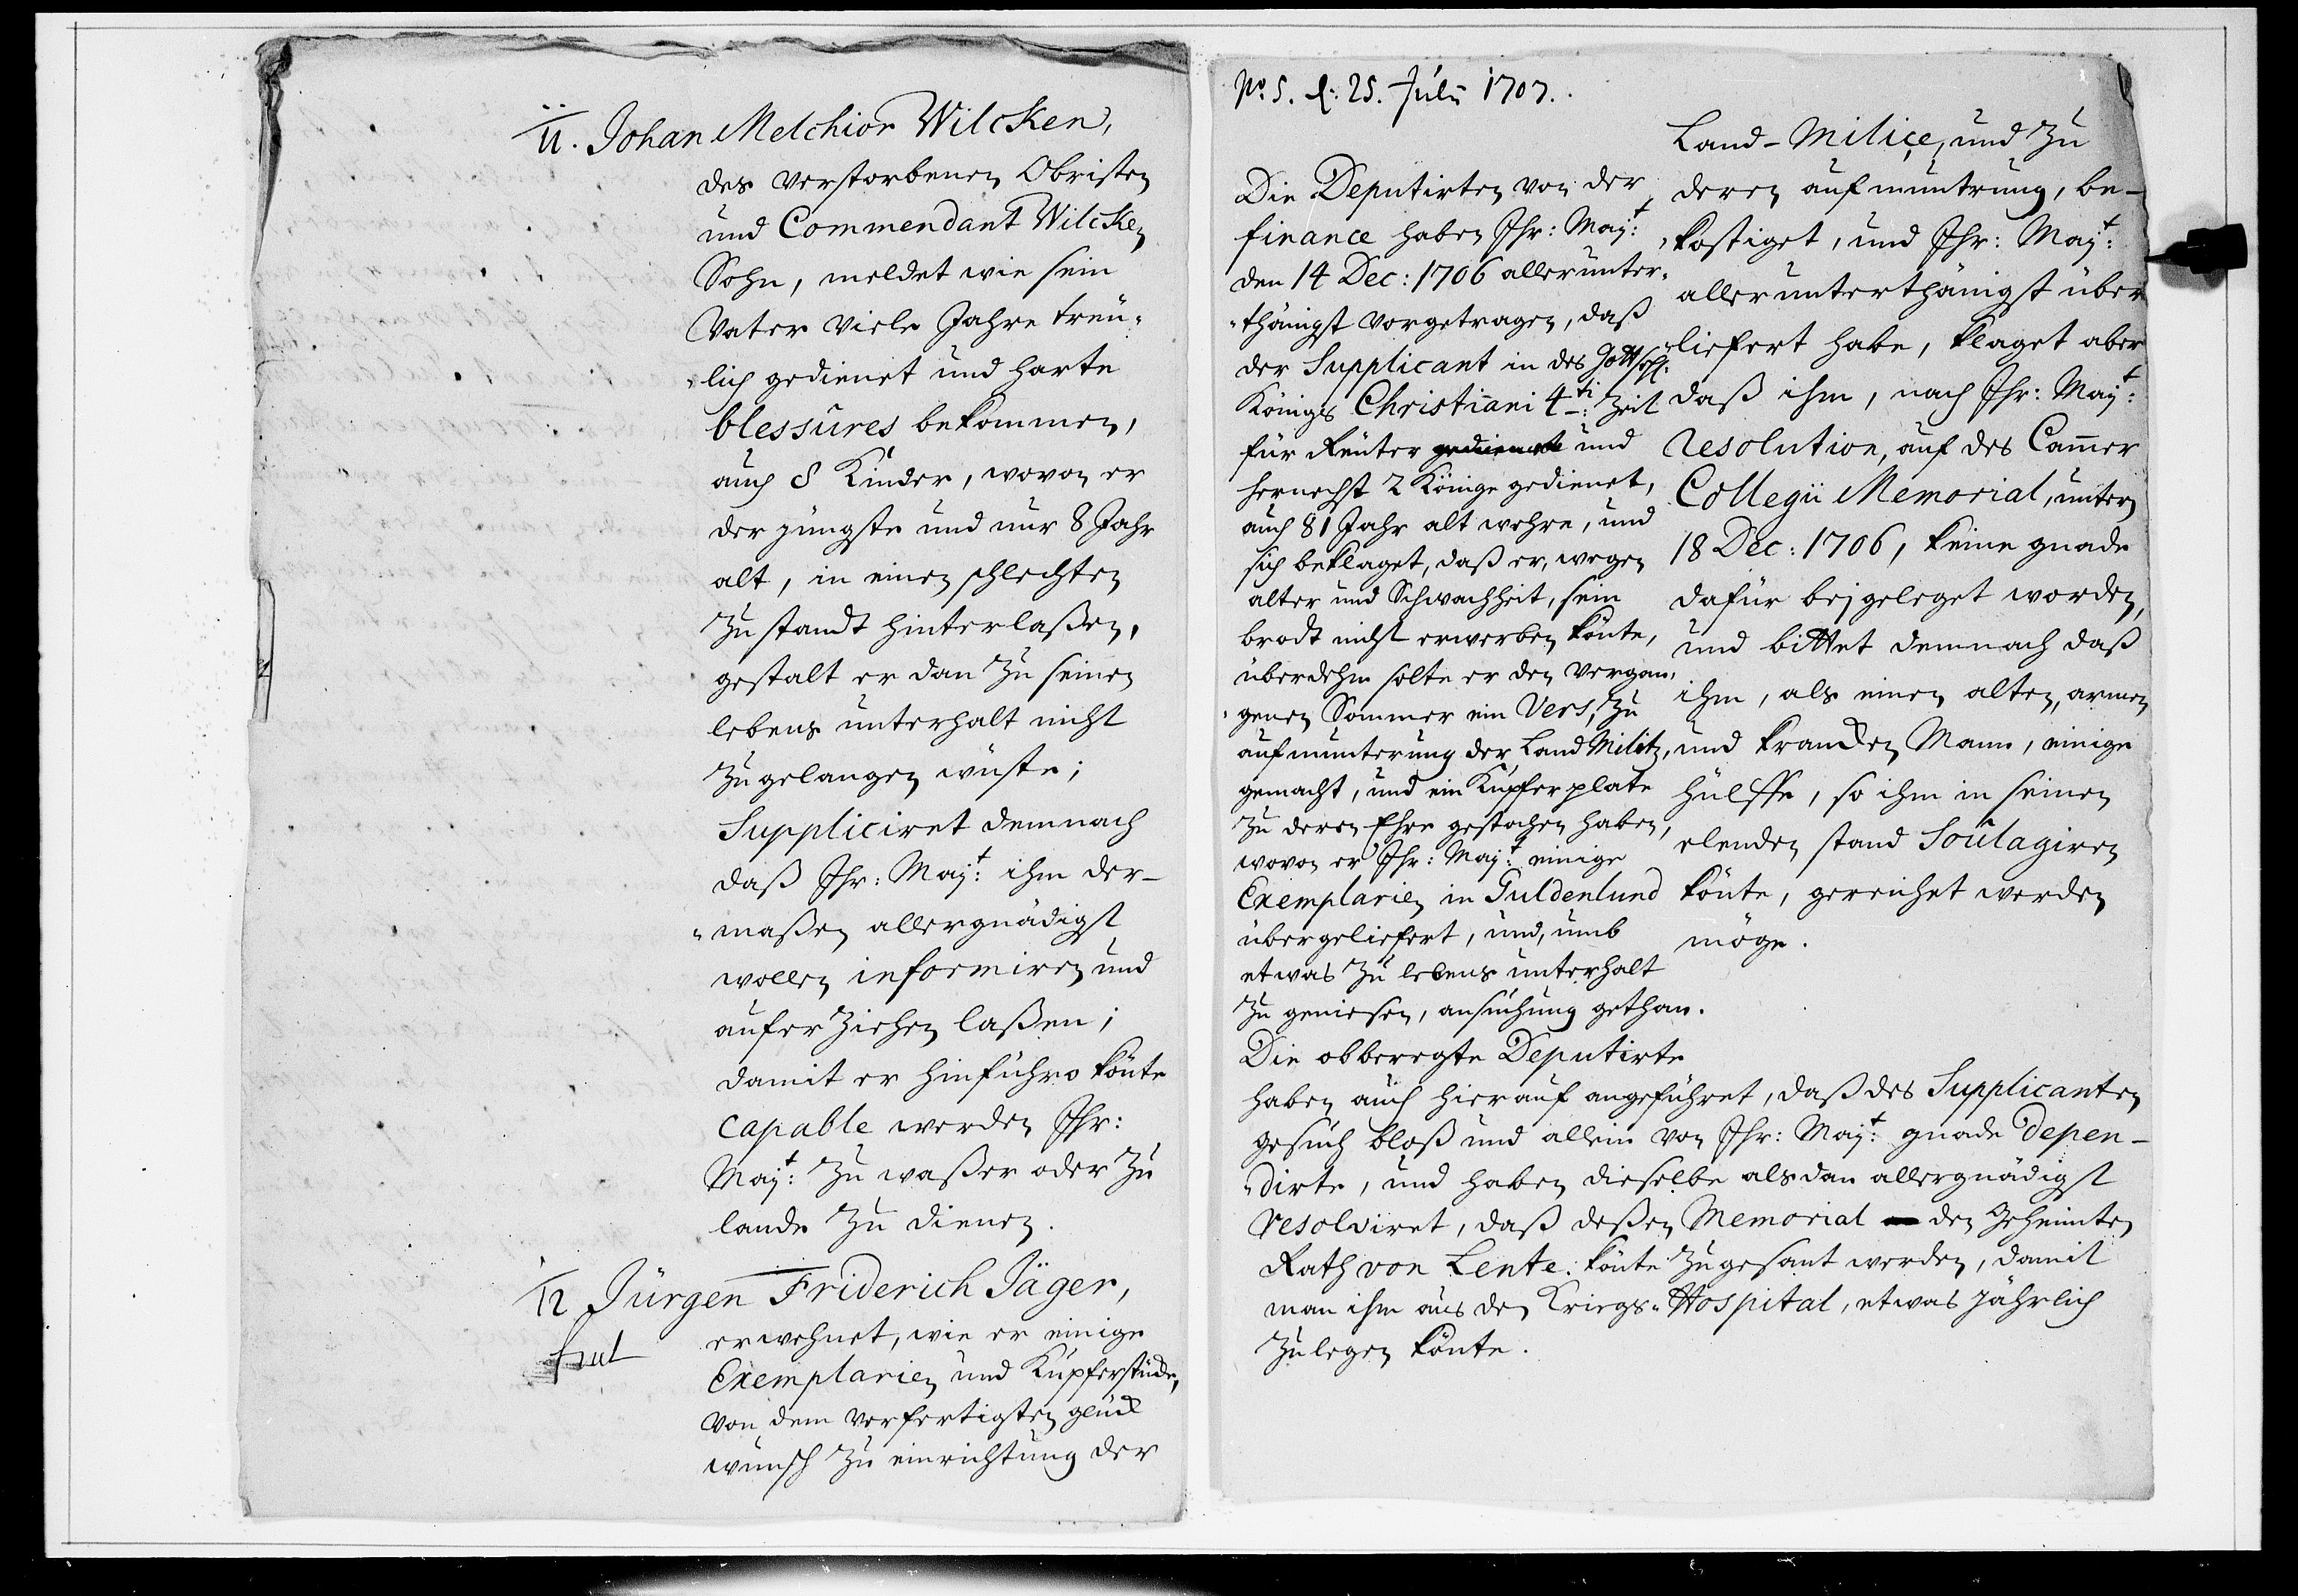 11. Johan Melchior Wilcken,
des verstorbenen Obristen
und Commendant Wilcken
Sohn, meldet wie sein
Vater viele Jahre treu-
-lich gedienet und harte
blessûres bekommen,
auch 8 Kinder, wovon er
der jüngste und nur 8 Jahr
alt, in einen schlechten
Zustandt hinterlaßen,
gestalt er dan zu seinen
lebens unterhalt nicht
zu gelangen wüste;
Suppliciret demnach
daß Ihr: Maj:t ihm der-
-maßen allergnädigst
wollen informiren und
auferziehen laßen;
damit er hinführo könte
capable werden Ihr:
Maj:t zu waßer oder zu
lande zu dienen.
12 Jürgen Friderich Jäger,
erwehnet, wie er einige
Exemplarien und Kupferstücke,
von dem verfertigten glück
wunsch zu einrichtung der
No. 5. d: 25. Julii 1707.
Die Deputirten von der
finance haben Ihr: Maj:t
den 14 Dec: 1706 allerunter-
-thänigst vorgetragen, daß
der Supplicant in des Gottseel:
Königs Christiani 4ti: Zeit
für Reuter gedienet und
hernechst 2 Könige gedienet,
auch 81 Jahr alt wehre, und
sich beklaget, daß er, wegen
alter und Schwachheit, sein
brodt nicht erwerben könte,
überdehm solte er den vergan-
-genen Sommer ein Vers, zu
aufmunterung der Land Militz,
gemacht, und ein Kupferplate
zu deren Ehre gestochen haben,
wovon er Ihr: Maj:t einige
Exemplarien in Guldenlund
übergeliefert, und, umb
etwas zu lebens unterhalt
zu geniesen, ansuchung gethan.
Die obberegte Deputirte
haben auch hierauf angeführet, daß des Supplicanten
gesuch bloß und allein von Ihr: Maj:t gnade depen-
-dirte, und haben dieselbe alsdan allergnädigst
resolviret, daß deßen Memorial den Geheimten
Rath von Lente könte zugesant werden, damit
man ihm aus den Kriegs-Hospital, etwas jährlich
zulegen könte.
Land-Miliçe, und zu
deren aufmuntrung, be-
-kostiget, und Ihr: Maj:t
allerunterthänigst über
-liefert habe, klaget aber
daß ihm, nach Ihr: Maj:t
resolution, auf des Cammer
Collegii Memorial, unterm
18 Dec: 1706, keine gnade
dafür beygeleget worden,
und bittet demnach daß
ihm, als einen alten, armen
und krancken Mann, einige
hülffe, so ihm in seinen
elenden stand Soûlagiren
könte, gereichet werden
möge.